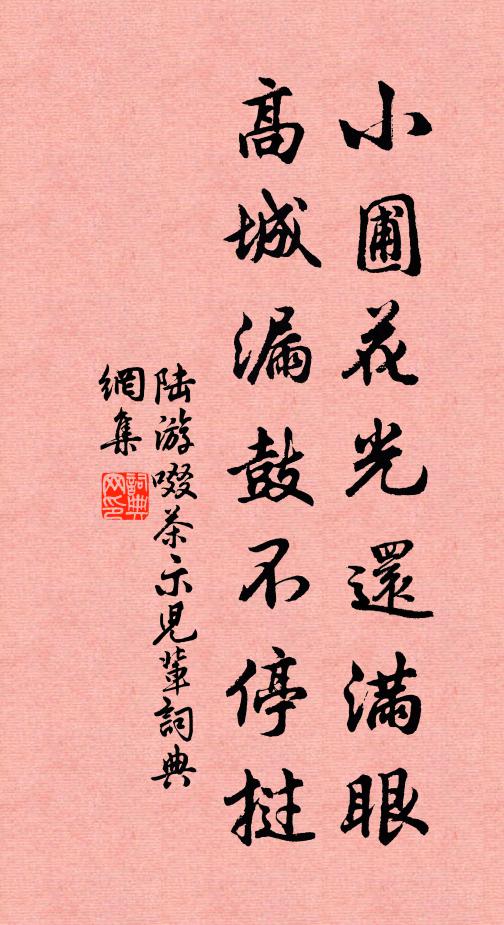 小圃花光還滿眼
高城漏鼓不停撾
陆游啜茶示兒輩詞典
網集
詞典
网印